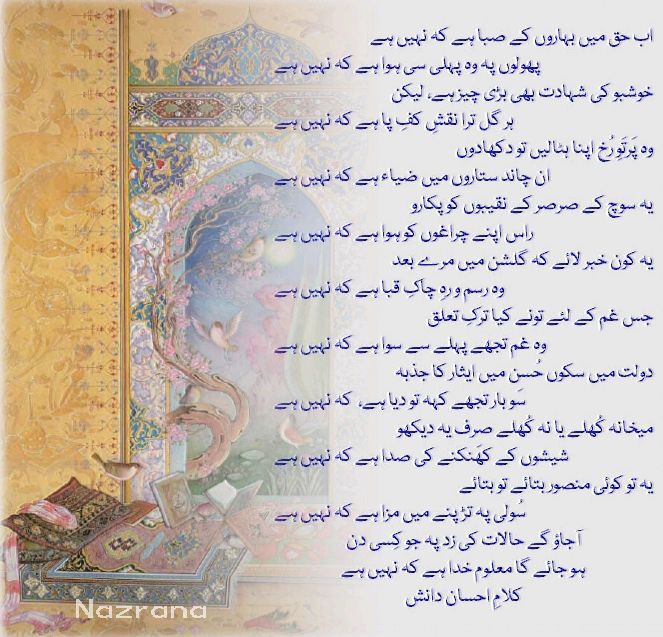 اب حق میں بہاروں کے صبا ہے کہ نہیں ہے
پھولوں پہ وہ پہلی سی ہوا ہے کہ نہیں ہے
خوشبو کی شہادت بھی بڑی چیز ہے، لیکن
ہر گل ترا نقشِ کفِ پا ہے کہ نہیں ہے
وہ پَرتَوِ رُخ اپنا ہٹالیں تو دکھادوں
ان چاند ستاروں میں ضیاء ہے کہ نہیں ہے
یہ سوچ کے صرصر کے نقیبوں کو پکارو
راس اپنے چراغوں کو ہوا ہے کہ نہیں ہے
یہ کون خبر لائے کہ گلشن میں مرے بعد
وہ رسم و رہِ چاکِ قبا ہے کہ نہیں ہے
جس غم کے لئے تونے کیا ترکِ تعلق
وہ غم تجھے پہلے سے سوا ہے کہ نہیں ہے
دولت میں سکوں حُسن میں ایثار کا جذبہ
سَو بار تجھے کہہ تو دیا ہے، کہ نہیں ہے
میخانہ کُھلے یا نہ کُھلے صرف یہ دیکھو
شیشوں کے کَھنکنے کی صدا ہے کہ نہیں ہے
یہ تو کوئی منصور بتائے تو بتائے
سُولی پہ تڑپنے میں مزا ہے کہ نہیں ہے
آجاؤ گے حالات کی زد پہ جو کِسی دن
ہو جائے گا معلوم خدا ہے کہ نہیں ہے
کلامِ احسان دانش
Nazrana